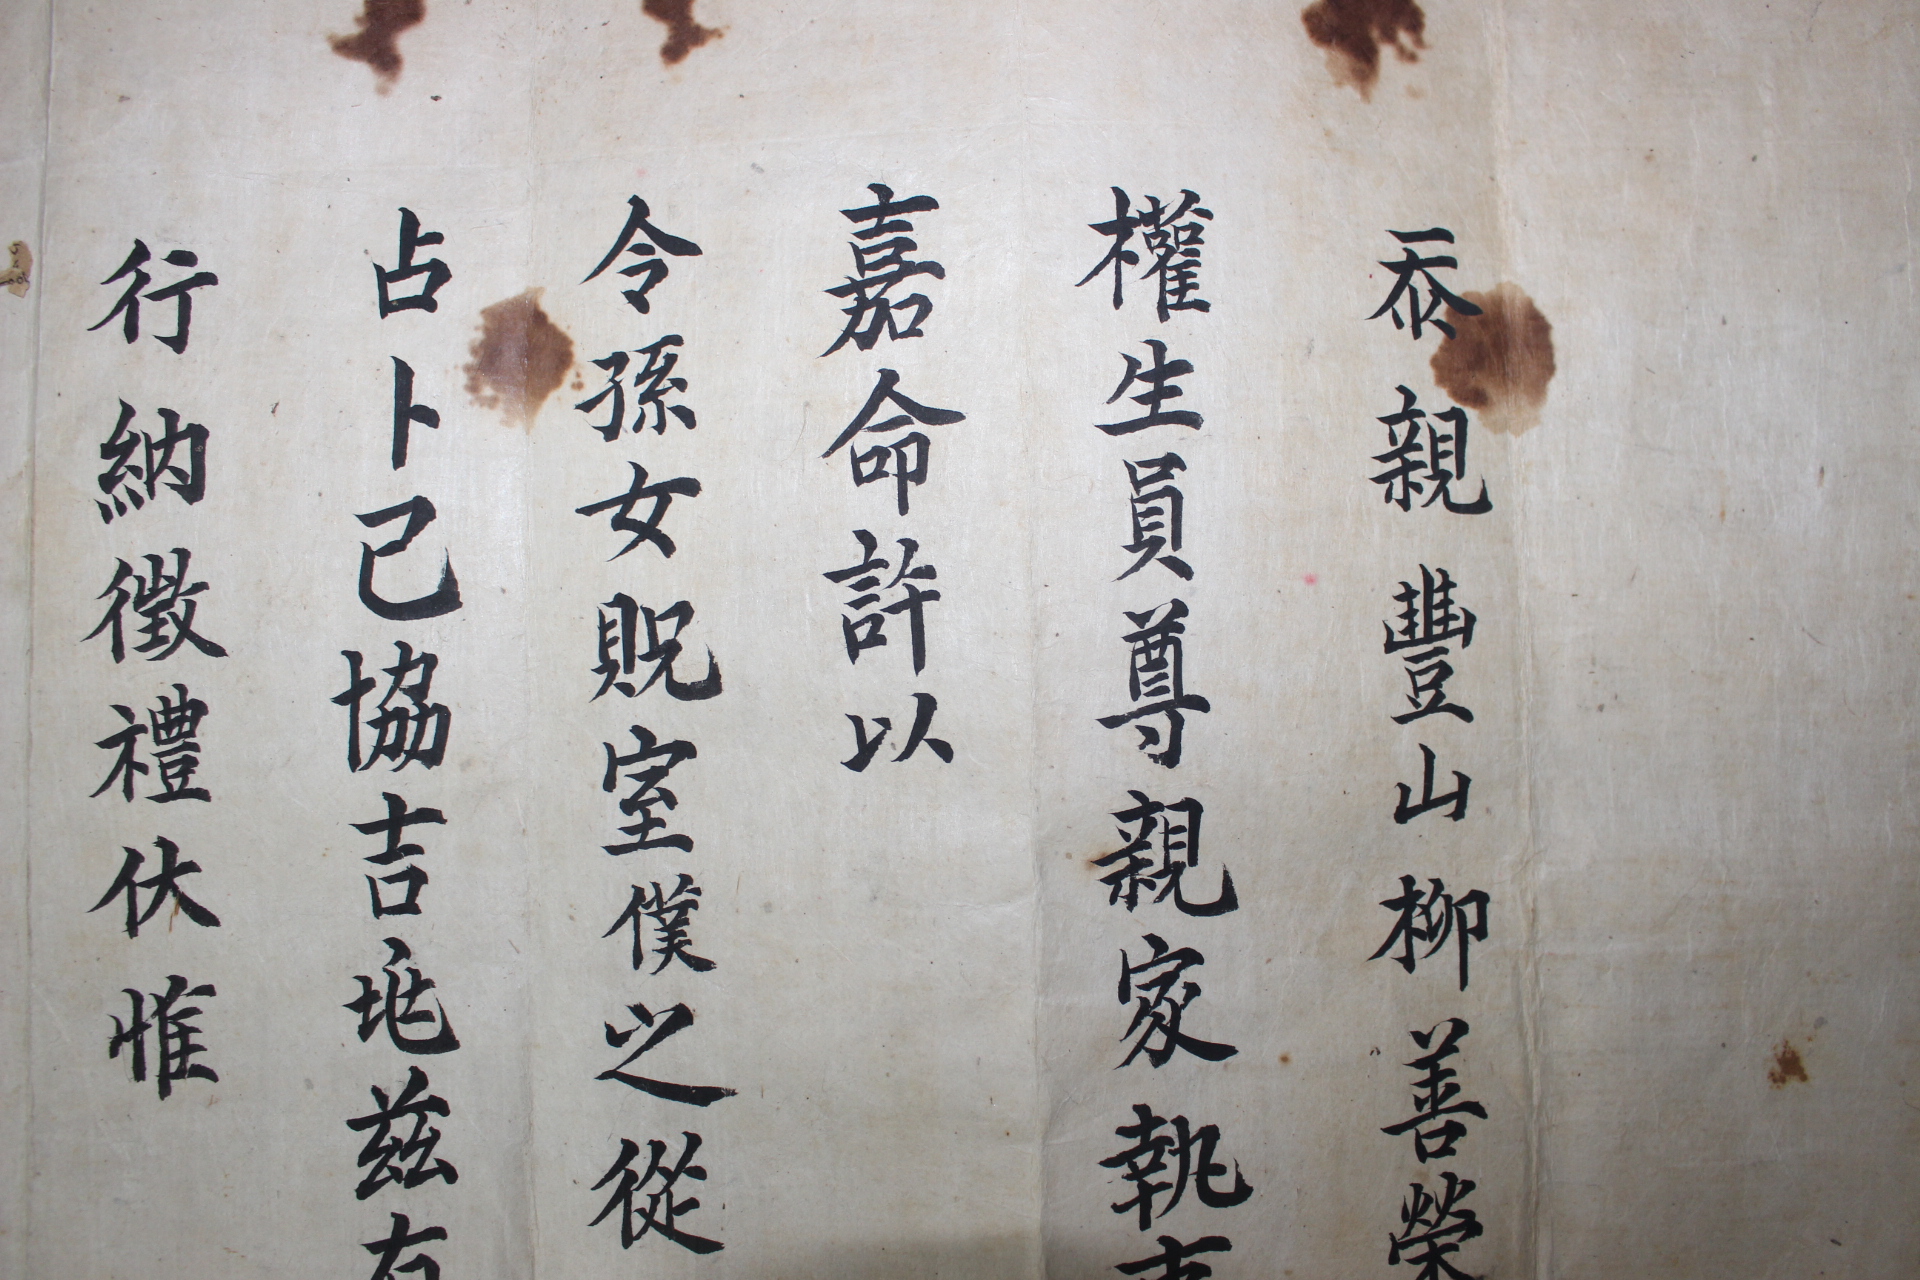 忝親豐山柳善榮
權生員尊親家執
嘉命許以
令孫女貺室僕之從
占卜已協吉兆茲有
行納徵禮伏惟